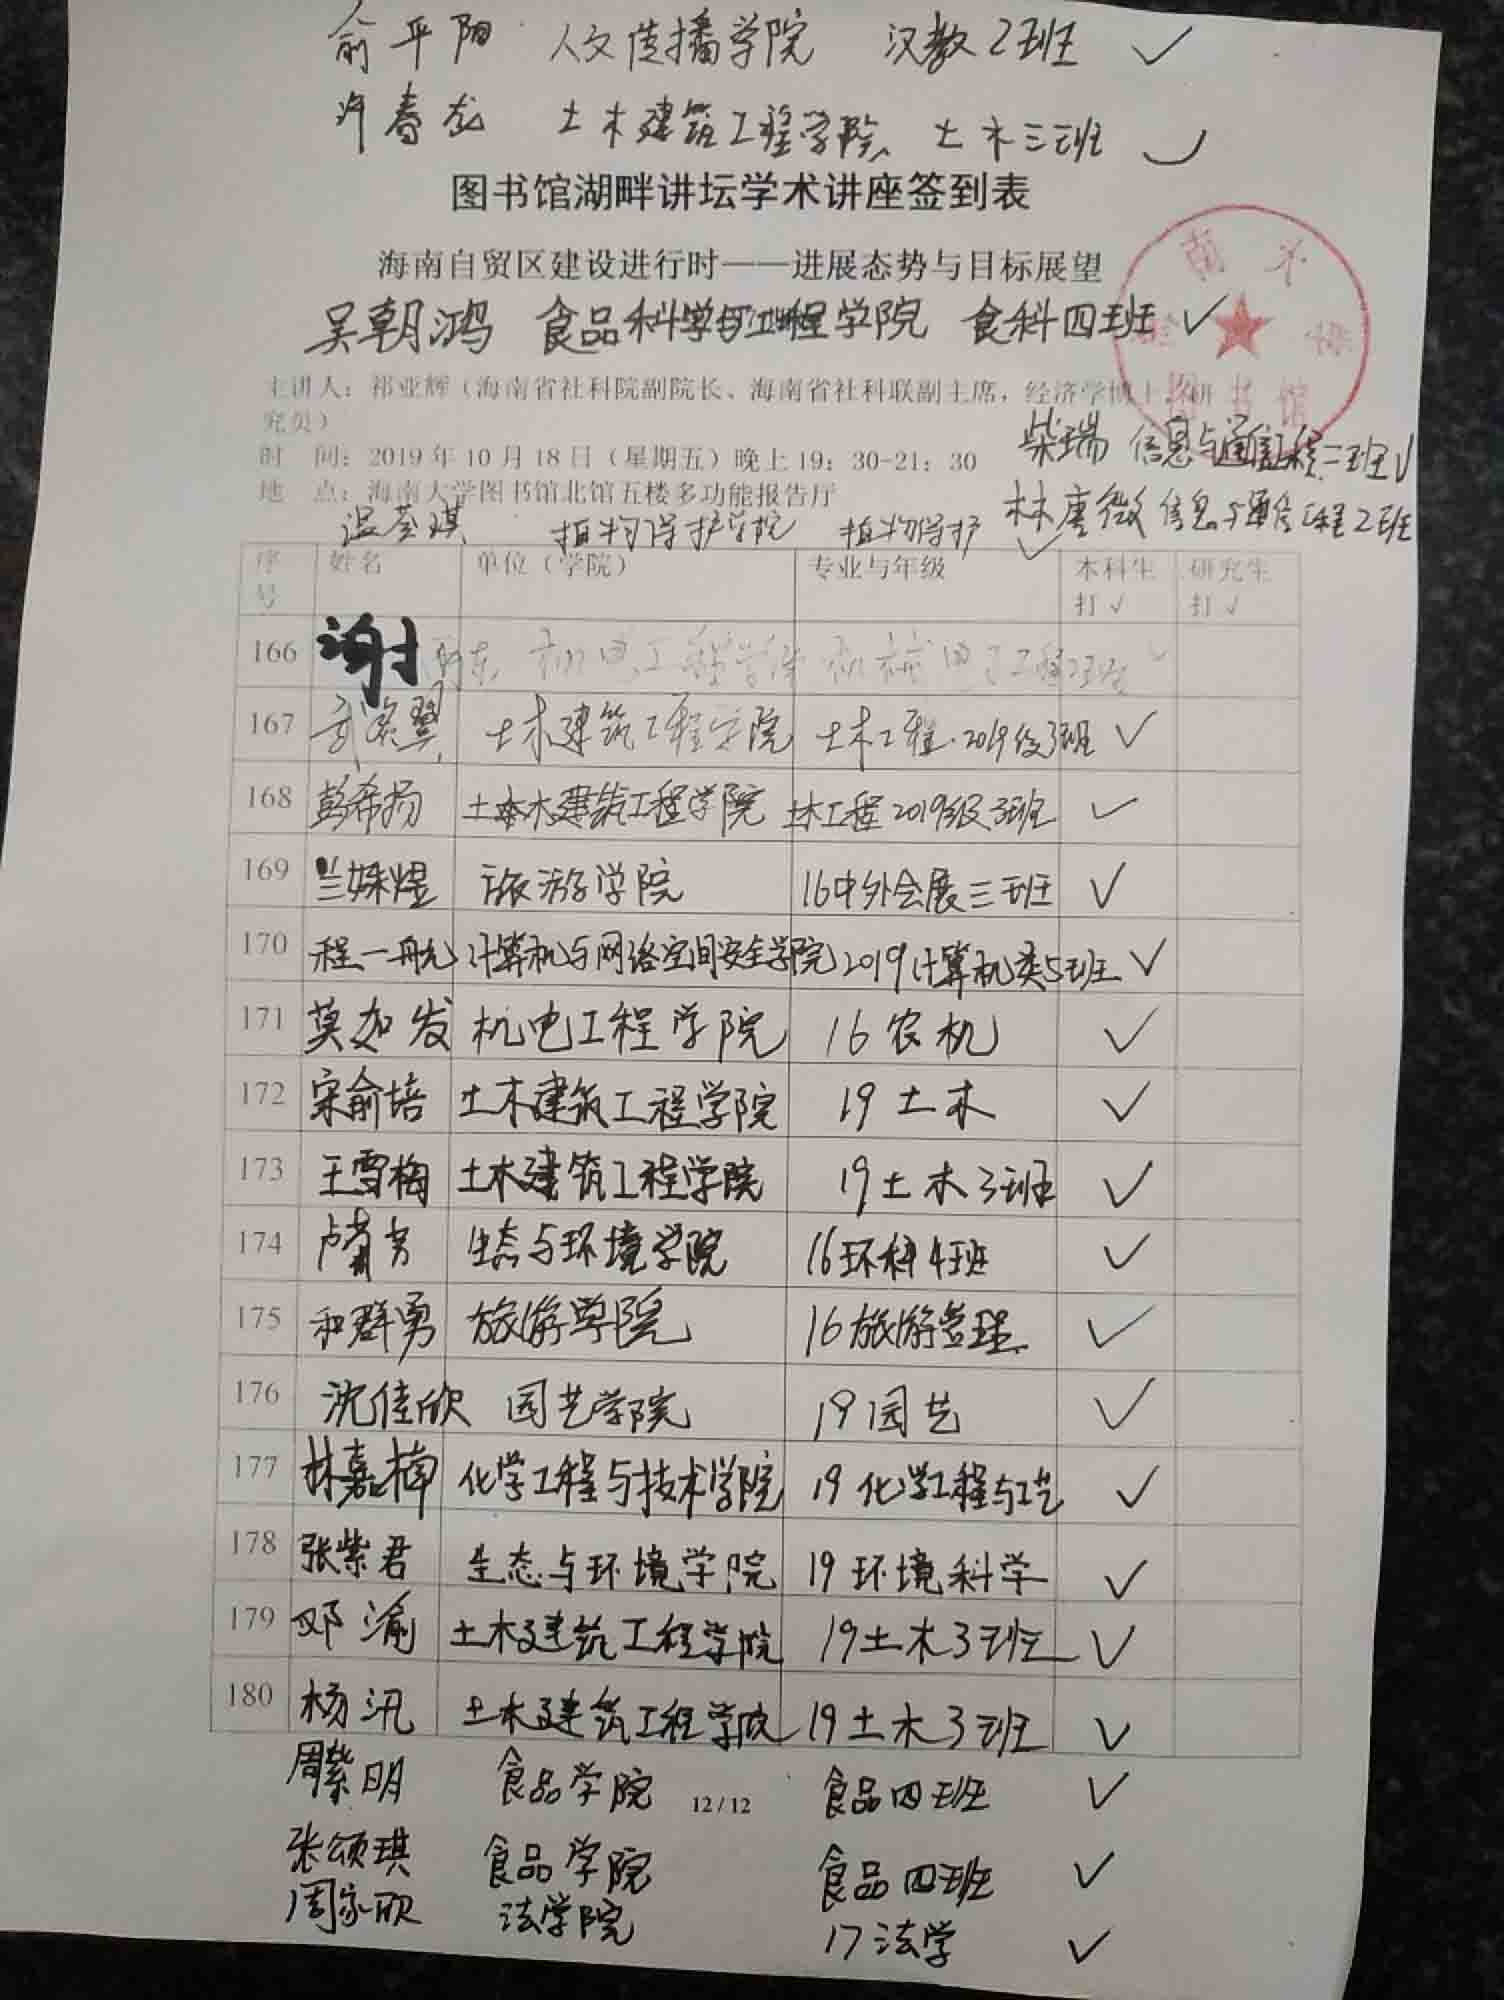 俞平阳 人文传播学院 汉教2班 ✓
许春龙 土木建筑工程学院 土木三班 ✓
图书馆湖畔讲坛学术讲座签到表
海南自贸区建设进行时——进展态势与目标展望
吴朝鸿 食品科学与工程学院 食科四班 ✓
主讲人：祁亚辉（海南省社科院副院长、海南省社科联副主席，经济学博士、研
究员）
时 间：2019年10月18日（星期五）晚上19：30-21：30
柴瑞 信息与通信工程二班 ✓
地 点：海南大学图书馆北馆五楼多功能报告厅
林唐微 信息与通信工程2班
温荟琪 植物保护学院 植物保护 ✓
序号 姓名 单位（学院） 专业与年级 本科生打√ 研究生打√
166 谢 机电工程学院 机械电子工程2班 ✓
167 土木建筑工程学院 土木工程2019级3班 ✓
168 彭希扬 土木建筑工程学院 土木工程2019级3班 ✓
169 兰姝煜 旅游学院 16中外会展三班 ✓
170 程一舟 计算机与网络空间安全学院 2019计算机类5班 ✓
171 莫加发 机电工程学院 16农机 ✓
172 宋俞培 土木建筑工程学院 19土木 ✓
173 王雪梅 土木建筑工程学院 19土木3班 ✓
174 卢 芳 生态与环境学院 16环科4班 ✓
175 和群勇 旅游学院 16旅游管理 ✓
176 沈佳欣 园艺学院 19园艺 ✓
177 林嘉楠 化学工程与技术学院 19化学工程与工艺 ✓
178 张紫君 生态与环境学院 19环境科学 ✓
179 邓渝 土木建筑工程学院 19土木3班 ✓
180 杨汛 土木建筑工程学院 19土木3班 ✓
周紫明 食品学院 食品四班 ✓
12 / 12
张颂琪 食品学院 食品四班 ✓
周家欣 法学院 17法学 ✓